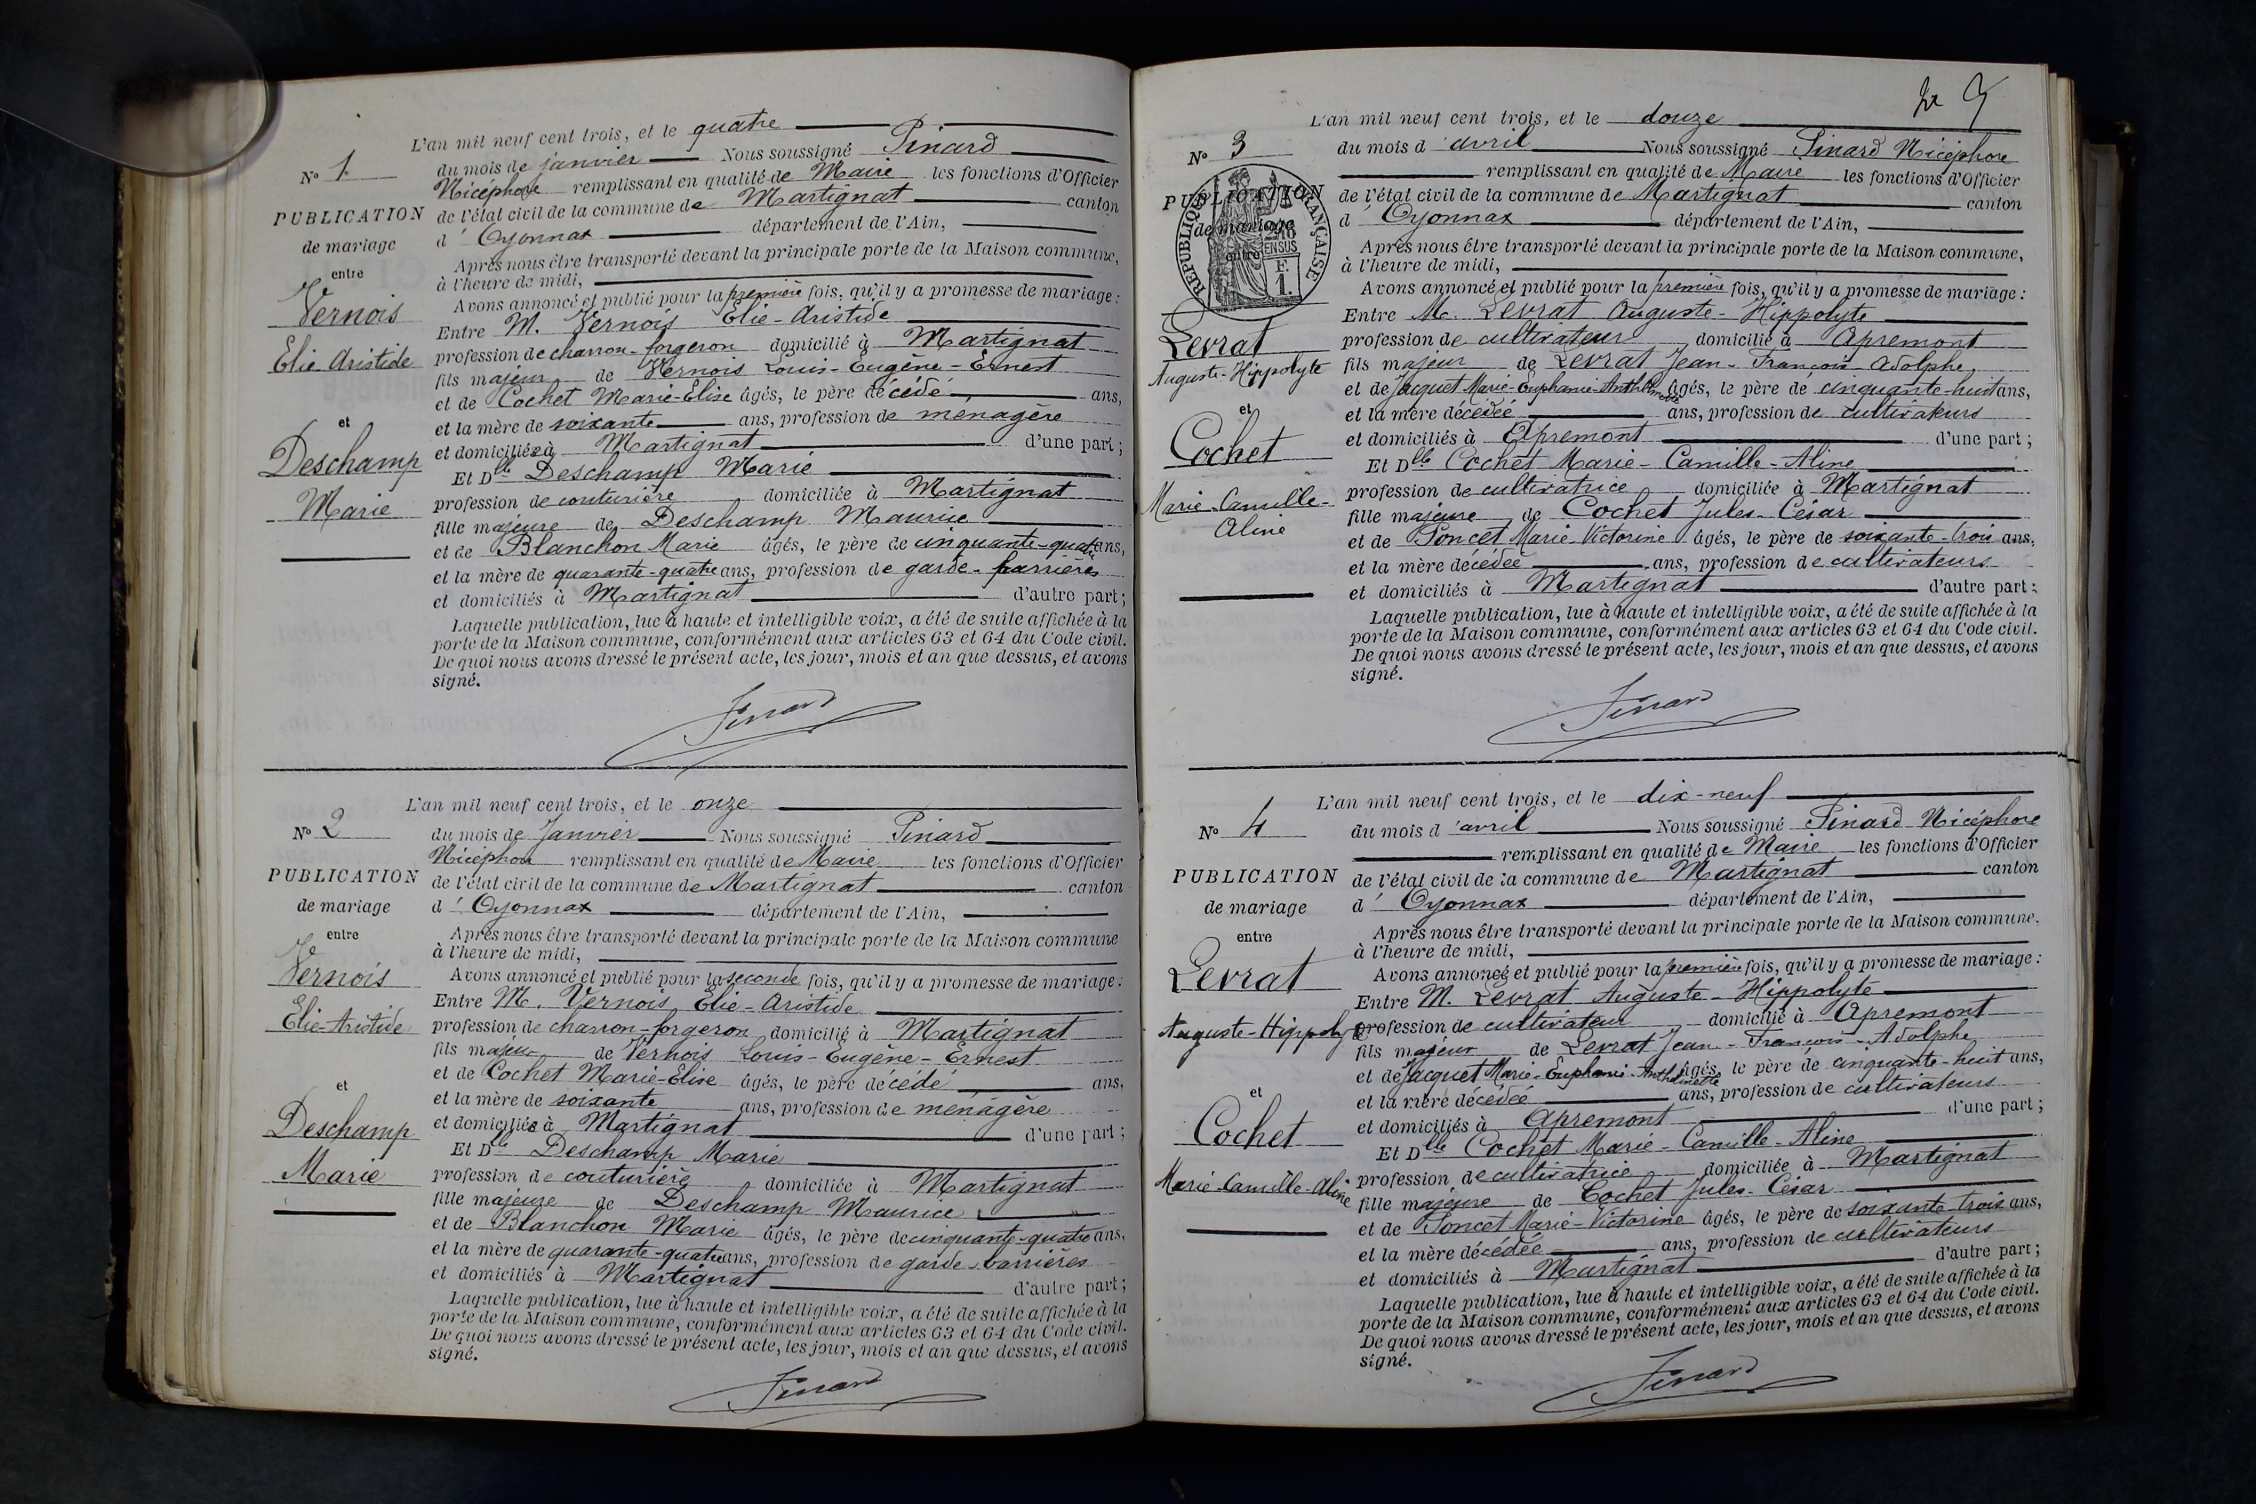 L'an mil neuf cent trois, et le quatre
N° 1 du mois de janvier Nous soussigné Pinard
Nicéphore remplissant en qualité de Maire les fonctions d'Officier
PUBLICATION de l'état civil de la commune de Martignat canton
de mariage d'Oyonnax département de l'Ain,
entre Après nous être transporté devant la principale porte de la Maison commune,
à l'heure de midi,
Vernois Avons annoncé et publié pour la première fois, qu'il y a promesse de mariage :
Entre M. Vernois Elie-Aristide
Elie Aristide profession de charron-forgeron domicilié à Martignat
fils majeur de Vernois Louis-Eugène-Ernest
et de Cochet Marie-Elise âgés, le père décédé ans,
et et la mère de soixante ans, profession de ménagère
et domiciliés à Martignat d'une part ;
Deschamp Et Dlle Deschamp Marie
Marie profession de couturière domiciliée à Martignat
fille majeure de Deschamp Maurice
et de Blanchon Marie âgés, le père de cinquante-quatre ans,
et la mère de quarante-quatre ans, profession de garde-barrières
et domiciliés à Martignat d'autre part ;
Laquelle publication, lue à haute et intelligible voix, a été de suite affichée à la
porte de la Maison commune, conformément aux articles 63 et 64 du Code civil.
De quoi nous avons dressé le présent acte, les jour, mois et an que dessus, et avons
signé.
Pinard
L'an mil neuf cent trois, et le onze
N° 2 du mois de Janvier Nous soussigné Pinard
Nicéphore remplissant en qualité de Maire les fonctions d'Officier
PUBLICATION de l'état civil de la commune de Martignat canton
de mariage d'Oyonnax département de l'Ain,
entre Après nous être transporté devant la principale porte de la Maison commune
à l'heure de midi,
Vernois Avons annoncé et publié pour la seconde fois, qu'il y a promesse de mariage :
Entre M. Vernois Elie-Aristide
Elie-Aristide profession de charron-forgeron domicilié à Martignat
fils majeur de Vernois Louis-Eugène-Ernest
et de Cochet Marie-Elise âgés, le père décédé ans,
et et la mère de soixante ans, profession de ménagère
Deschamp et domiciliés à Martignat d'une part ;
Et Dlle Deschamp Marie
Marie profession de couturière domiciliée à Martignat
fille majeure de Deschamp Maurice
et de Blanchon Marie âgés, le père de cinquante-quatre ans,
et la mère de quarante-quatre ans, profession de garde-barrières
et domiciliés à Martignat d'autre part ;
Laquelle publication, lue à haute et intelligible voix, a été de suite affichée à la
porte de la Maison commune, conformément aux articles 63 et 64 du Code civil.
De quoi nous avons dressé le présent acte, les jour, mois et an que dessus, et avons
signé.
Pinard
L'an mil neuf cent trois, et le douze
N° 3 du mois d'avril Nous soussigné Pinard Nicéphore
remplissant en qualité de Maire les fonctions d'Officier
PUBLICATION de l'état civil de la commune de Martignat canton
de mariage d'Oyonnax département de l'Ain,
RÉPUBLIQUE FRANÇAISE
entre Après nous être transporté devant la principale porte de la Maison commune,
à l'heure de midi,
Avons annoncé et publié pour la première fois, qu'il y a promesse de mariage :
Entre M. Levrat Auguste-Hippolyte
Levrat profession de cultivateur domicilié à Apremont
Auguste-Hippolyte fils majeur de Levrat Jean-François Adolphe
et de Jacquet Marie-Euphanie âgés, le père de cinquante-huit ans,
et et la mère décédée ans, profession de cultivateurs
Cochet et domiciliés à Apremont d'une part ;
Et Dlle Cochet Marie-Camille-Aline
Marie-Camille- profession de cultivatrice domiciliée à Martignat
Aline fille majeure de Cochet Jules-César
et de Poncet Marie-Victorine âgés, le père de soixante-trois ans,
et la mère décédée ans, profession de cultivateurs
et domiciliés à Martignat d'autre part ;
Laquelle publication, lue à haute et intelligible voix, a été de suite affichée à la
porte de la Maison commune, conformément aux articles 63 et 64 du Code civil.
De quoi nous avons dressé le présent acte, les jour, mois et an que dessus, et avons
signé.
Pinard
L'an mil neuf cent trois, et le dix-neuf
N° 4 du mois d'avril Nous soussigné Pinard Nicéphore
remplissant en qualité de Maire les fonctions d'Officier
PUBLICATION de l'état civil de la commune de Martignat canton
de mariage d'Oyonnax département de l'Ain,
entre Après nous être transporté devant la principale porte de la Maison commune,
à l'heure de midi,
Levrat Avons annoncé et publié pour la première fois, qu'il y a promesse de mariage :
Entre M. Levrat Auguste-Hippolyte
Auguste-Hippolyte profession de cultivateur domicilié à Apremont
fils majeur de Levrat Jean-François-Adolphe
et de Jacquet Marie-Euphanie âgés, le père de cinquante-huit ans,
et et la mère décédée ans, profession de cultivateurs
Cochet et domiciliés à Apremont d'une part ;
Et Dlle Cochet Marie-Camille-Aline
Marie-Camille-Aline profession de cultivatrice domiciliée à Martignat
fille majeure de Cochet Jules-César
et de Poncet Marie-Victorine âgés, le père de soixante-trois ans,
et la mère décédée ans, profession de cultivateurs
et domiciliés à Martignat d'autre part ;
Laquelle publication, lue à haute et intelligible voix, a été de suite affichée à la
porte de la Maison commune, conformément aux articles 63 et 64 du Code civil.
De quoi nous avons dressé le présent acte, les jour, mois et an que dessus, et avons
signé.
Pinard